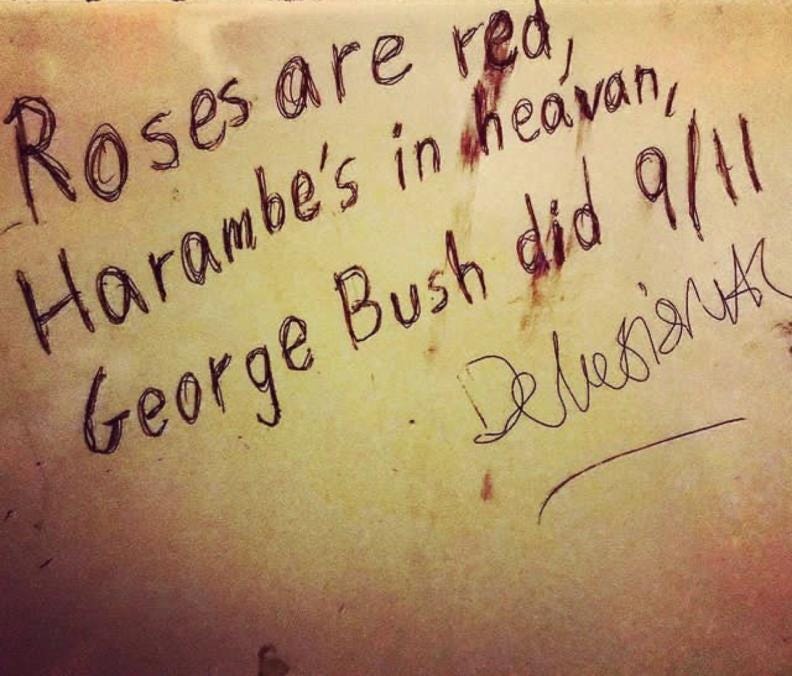 Roses are red,
Harambe's in heavan,
George Bush did 9/11